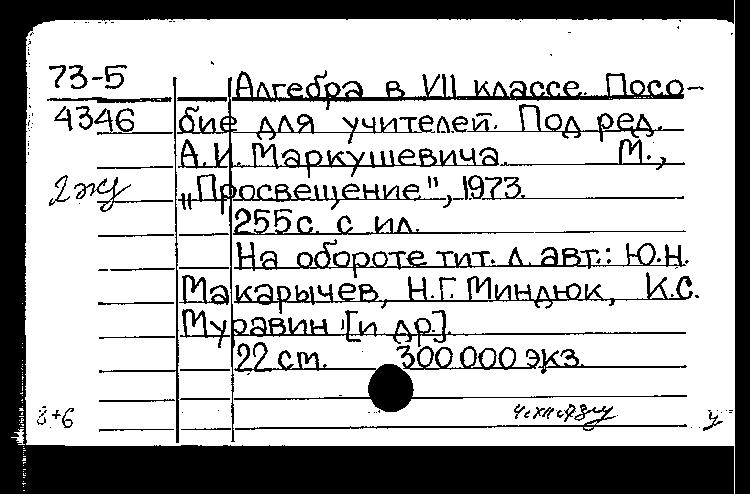 73-5 Алгебра в VII классе. Посо-
4346 бие для учителей. Под ред.
А.И. Маркушевича. М.,
2 экз „Просвещение", 1973.
255 с. с ил.
На обороте тит. л. авт.: Ю.Н.
Макарычев, Н.Г. Миндюк, К.С.
Муравин [и др].
22 см. 300 000 экз.
8+6